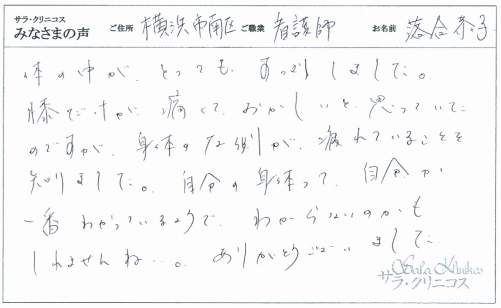 サラ・クリニコス
みなさまの声 ご住所 横浜市南区 ご職業 看護師 お名前 落合恭子
体の中が、とっても、すっきりしました。
膝だけが、痛くて、おかしいと思っていた
のですが、身体の左側が、疲れていることを
知りました。自分の身体って、自分が
一番わかっているようで、わからないのかも
しれませんね…。ありがとうございました
Sara Klinikos
サラ・クリニコス